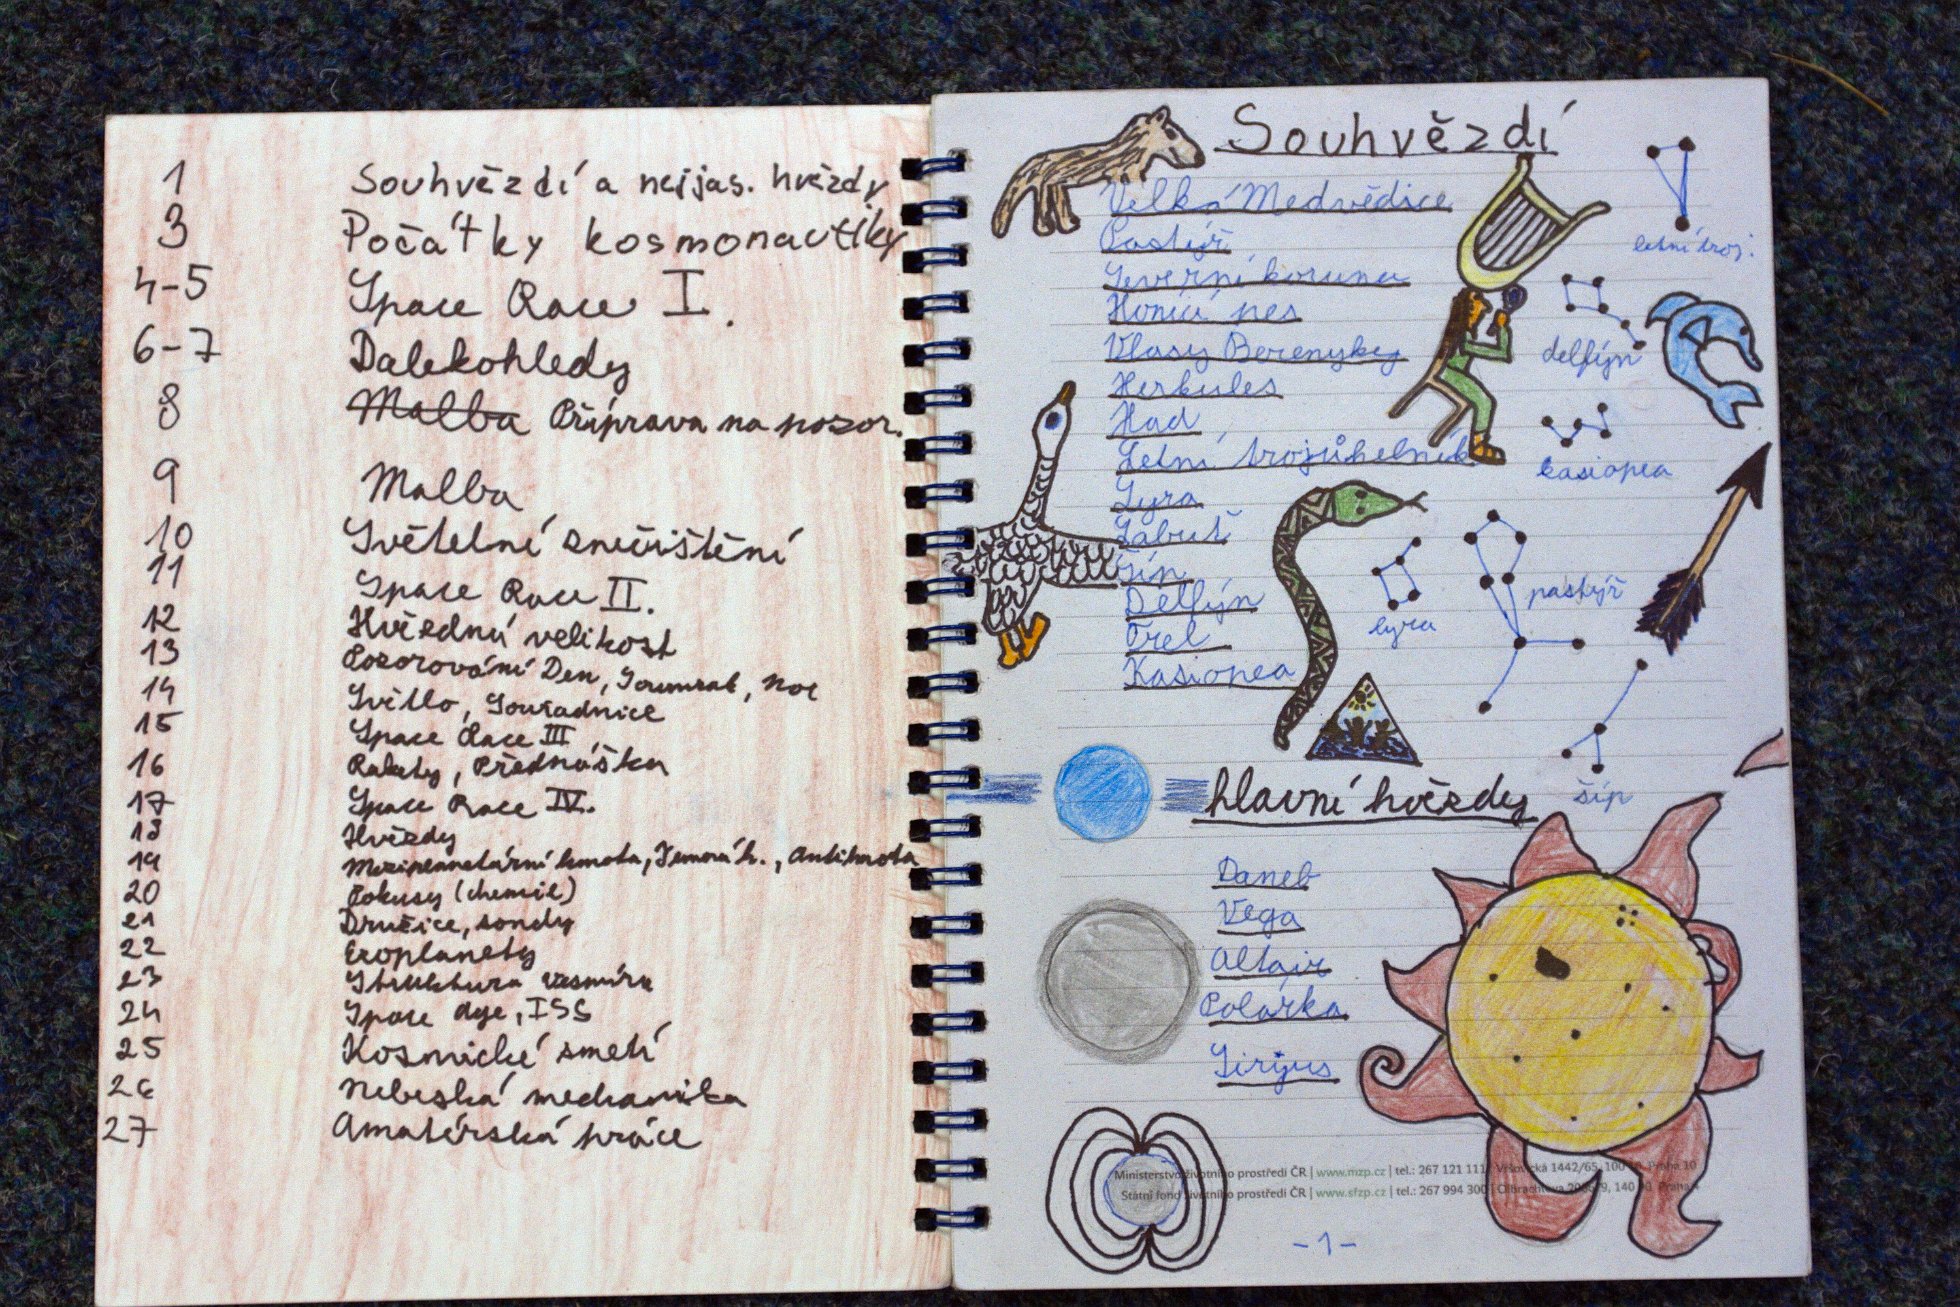 1 Souhvězdí a nejjas. hvězdy
3 Počátky kosmonautiky
4-5 Space Race I.
6-7 Dalekohledy
8 Malba Příprava na pozor.
9 Malba
10 Světelné znečištění
11 Space Race II.
12 Hvězdná velikost
13 Pozorování Den, Soumrak, noc
14 Světlo, Souřadnice
15 Space Race III
16 Rakety, Přednáška
17 Space Race IV.
18 Hvězdy
19 Meziplanetární hmota, Temná h., Antihmota
20 Pokusy (chemie)
21 Družice, sondy
22 Exoplanety
23 Struktura vesmíru
24 Space age, ISS
25 Kosmické smetí
26 Nebeská mechanika
27 Amatérská práce
Souhvězdí
Velká Medvědice
Pastýř
Severní koruna
Honící pes
Vlasy Berenyky
Herkules
Had
Letní trojúhelník
Lyra
Labuť
Šíp
Delfýn
Orel
Kasiopea
letní troj.
delfýn
kasiopea
lyra
pastýř
šíp
hlavní hvězdy
Daneb
Vega
Altair
Polárka
Sirijus
Ministerstvo životního prostředí ČR | www.mzp.cz | tel.: 267 121 111 | Vršovická 1442/65, 100 Praha 10
Státní fond životního prostředí ČR | www.sfzp.cz | tel.: 267 994 300 | Olbrachtova 140 Praha
-1-